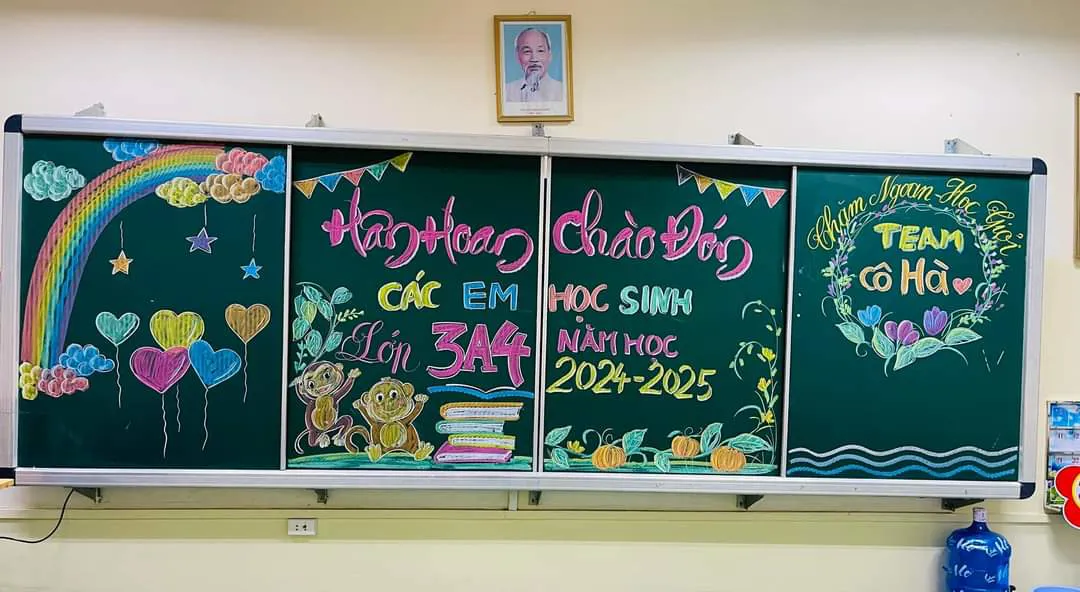 Hân Hoan Chào Đón
CÁC EM HỌC SINH
Lớp 3A4 NĂM HỌC
2024-2025
Chăm Ngoan-Học Giỏi
TEAM
cô Hà